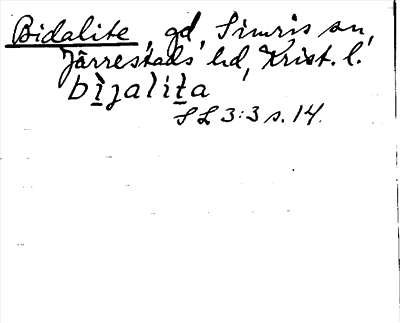 Bidalite, gd, Simris sn,
Järrestads hd, Krist. l.
bìjalita
SL 3:3 s. 14.